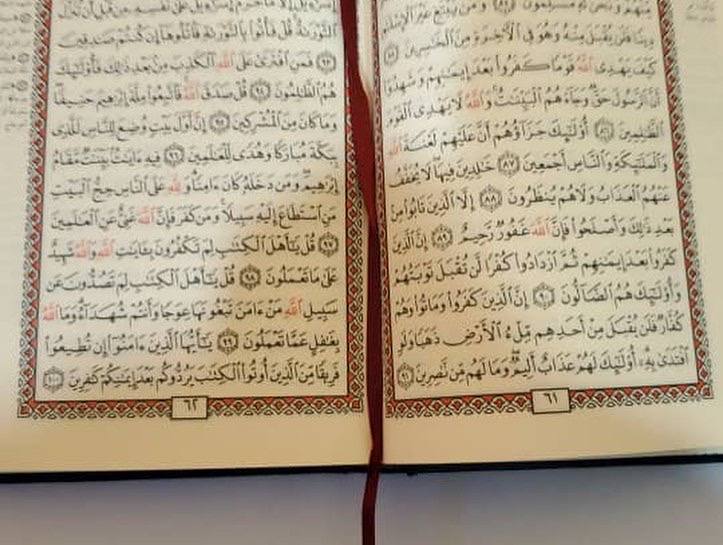 مِنْهُمْ وَنَحْنُ لَهُۥ مُسْلِمُونَ ٨٤ وَمَن يَبْتَغِ غَيْرَ ٱلْإِسْلَٰمِ
دِينًا فَلَن يُقْبَلَ مِنْهُ وَهُوَ فِى ٱلْءَاخِرَةِ مِنَ ٱلْخَٰسِرِينَ ٨٥
كَيْفَ يَهْدِى ٱللَّهُ قَوْمًا كَفَرُوا۟ بَعْدَ إِيمَٰنِهِمْ وَشَهِدُوٓا۟
أَنَّ ٱلرَّسُولَ حَقٌّ وَجَآءَهُمُ ٱلْبَيِّنَٰتُ وَٱللَّهُ لَا يَهْدِى ٱلْقَوْمَ
ٱلظَّٰلِمِينَ ٨٦ أُو۟لَٰٓئِكَ جَزَآؤُهُمْ أَنَّ عَلَيْهِمْ لَعْنَةَ ٱللَّهِ
وَٱلْمَلَٰٓئِكَةِ وَٱلنَّاسِ أَجْمَعِينَ ٨٧ خَٰلِدِينَ فِيهَا لَا يُخَفَّفُ
عَنْهُمُ ٱلْعَذَابُ وَلَا هُمْ يُنظَرُونَ ٨٨ إِلَّا ٱلَّذِينَ تَابُوا۟ مِنۢ
بَعْدِ ذَٰلِكَ وَأَصْلَحُوا۟ فَإِنَّ ٱللَّهَ غَفُورٌ رَّحِيمٌ ٨٩ إِنَّ ٱلَّذِينَ
كَفَرُوا۟ بَعْدَ إِيمَٰنِهِمْ ثُمَّ ٱزْدَادُوا۟ كُفْرًا لَّن تُقْبَلَ تَوْبَتُهُمْ
وَأُو۟لَٰٓئِكَ هُمُ ٱلضَّآلُّونَ ٩٠ إِنَّ ٱلَّذِينَ كَفَرُوا۟ وَمَاتُوا۟ وَهُمْ
كُفَّارٌ فَلَن يُقْبَلَ مِنْ أَحَدِهِم مِّلْءُ ٱلْأَرْضِ ذَهَبًا وَلَوِ
ٱفْتَدَىٰ بِهِۦٓ أُو۟لَٰٓئِكَ لَهُمْ عَذَابٌ أَلِيمٌ وَمَا لَهُم مِّن نَّٰصِرِينَ ٩١
٦١
ٱلتَّوْرَىٰةُ قُلْ فَأْتُوا۟ بِٱلتَّوْرَىٰةِ فَٱتْلُوهَآ إِن كُنتُمْ صَٰدِقِينَ
٩٣ فَمَنِ ٱفْتَرَىٰ عَلَى ٱللَّهِ ٱلْكَذِبَ مِنۢ بَعْدِ ذَٰلِكَ فَأُو۟لَٰٓئِكَ
هُمُ ٱلظَّٰلِمُونَ ٩٤ قُلْ صَدَقَ ٱللَّهُ فَٱتَّبِعُوا۟ مِلَّةَ إِبْرَٰهِيمَ حَنِيفًا
وَمَا كَانَ مِنَ ٱلْمُشْرِكِينَ ٩٥ إِنَّ أَوَّلَ بَيْتٍ وُضِعَ لِلنَّاسِ لَلَّذِى
بِبَكَّةَ مُبَارَكًا وَهُدًى لِّلْعَٰلَمِينَ ٩٦ فِيهِ ءَايَٰتٌۢ بَيِّنَٰتٌ مَّقَامُ
إِبْرَٰهِيمَ وَمَن دَخَلَهُۥ كَانَ ءَامِنًا وَلِلَّهِ عَلَى ٱلنَّاسِ حِجُّ ٱلْبَيْتِ
مَنِ ٱسْتَطَاعَ إِلَيْهِ سَبِيلًا وَمَن كَفَرَ فَإِنَّ ٱللَّهَ غَنِىٌّ عَنِ ٱلْعَٰلَمِينَ
٩٧ قُلْ يَٰٓأَهْلَ ٱلْكِتَٰبِ لِمَ تَكْفُرُونَ بِـَٔايَٰتِ ٱللَّهِ وَٱللَّهُ شَهِيدٌ
عَلَىٰ مَا تَعْمَلُونَ ٩٨ قُلْ يَٰٓأَهْلَ ٱلْكِتَٰبِ لِمَ تَصُدُّونَ عَن
سَبِيلِ ٱللَّهِ مَنْ ءَامَنَ تَبْغُونَهَا عِوَجًا وَأَنتُمْ شُهَدَآءُ وَمَا ٱللَّهُ
بِغَٰفِلٍ عَمَّا تَعْمَلُونَ ٩٩ يَٰٓأَيُّهَا ٱلَّذِينَ ءَامَنُوٓا۟ إِن تُطِيعُوا۟
فَرِيقًا مِّنَ ٱلَّذِينَ أُوتُوا۟ ٱلْكِتَٰبَ يَرُدُّوكُم بَعْدَ إِيمَٰنِكُمْ كَٰفِرِينَ ١٠٠
٦٢